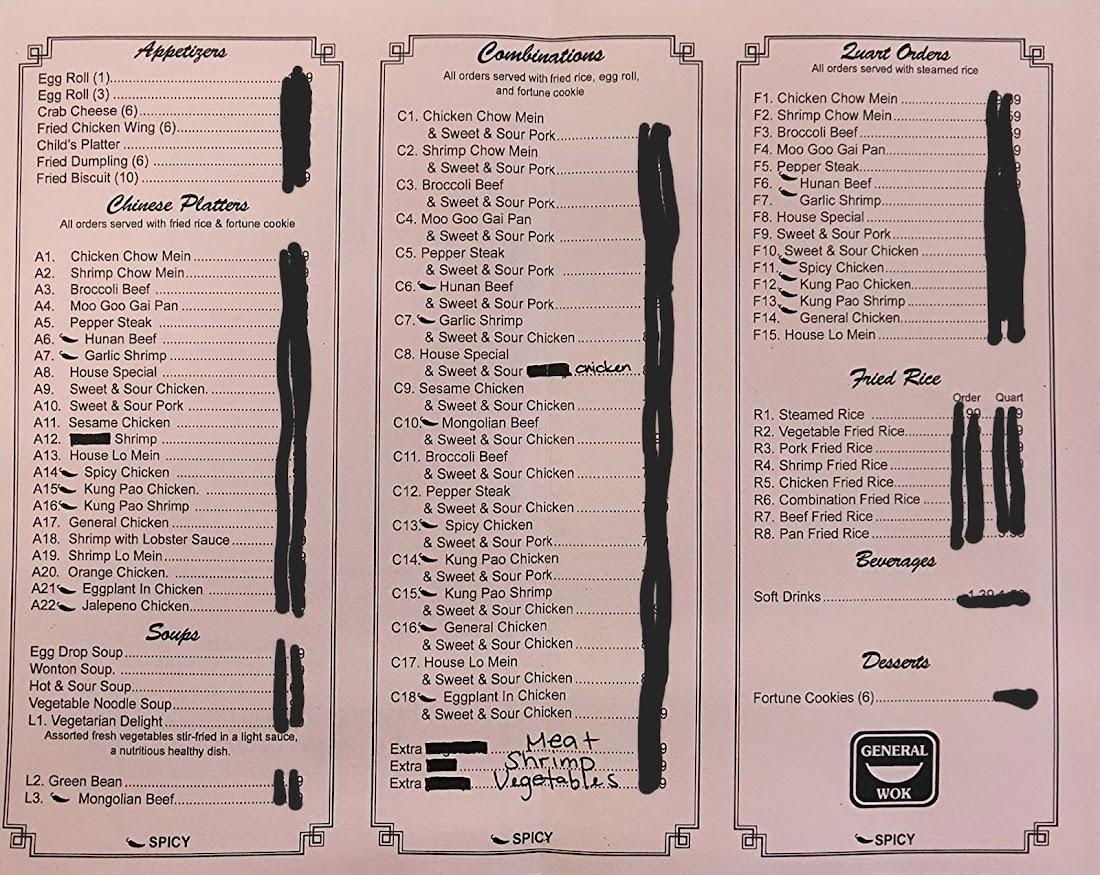 Appetizers
Egg Roll (1)
Egg Roll (3)
Crab Cheese (6)
Fried Chicken Wing (6)
Child's Platter
Fried Dumpling (6)
Fried Biscuit (10)
Chinese Platters
All orders served with fried rice & fortune cookie
A1. Chicken Chow Mein
A2. Shrimp Chow Mein
A3. Broccoli Beef
A4. Moo Goo Gai Pan
A5. Pepper Steak
A6. Hunan Beef
A7. Garlic Shrimp
A8. House Special
A9. Sweet & Sour Chicken.
A10. Sweet & Sour Pork
A11. Sesame Chicken
A12. Shrimp
A13. House Lo Mein
A14 Spicy Chicken
A15 Kung Pao Chicken.
A16 Kung Pao Shrimp
A17. General Chicken
A18. Shrimp with Lobster Sauce
A19. Shrimp Lo Mein
A20. Orange Chicken.
A21 Eggplant In Chicken
A22 Jalepeno Chicken
Soups
Egg Drop Soup
Wonton Soup.
Hot & Sour Soup
Vegetable Noodle Soup
L1. Vegetarian Delight
Assorted fresh vegetables stir-fried in a light sauce,
a nutritious healthy dish.
L2. Green Bean
L3. Mongolian Beef
SPICY
Combinations
All orders served with fried rice, egg roll,
and fortune cookie
C1. Chicken Chow Mein
& Sweet & Sour Pork
C2. Shrimp Chow Mein
& Sweet & Sour Pork
C3. Broccoli Beef
& Sweet & Sour Pork
C4. Moo Goo Gai Pan
& Sweet & Sour Pork
C5. Pepper Steak
& Sweet & Sour Pork
C6. Hunan Beef
& Sweet & Sour Pork
C7. Garlic Shrimp
& Sweet & Sour Chicken
C8. House Special
& Sweet & Sour chicken
C9. Sesame Chicken
& Sweet & Sour Chicken
C10. Mongolian Beef
& Sweet & Sour Chicken
C11. Broccoli Beef
& Sweet & Sour Chicken
C12. Pepper Steak
& Sweet & Sour Chicken
C13. Spicy Chicken
& Sweet & Sour Pork
C14. Kung Pao Chicken
& Sweet & Sour Pork
C15. Kung Pao Shrimp
& Sweet & Sour Chicken
C16. General Chicken
& Sweet & Sour Chicken
C17. House Lo Mein
& Sweet & Sour Chicken
C18 Eggplant In Chicken
& Sweet & Sour Chicken
Extra Meat
Extra Shrimp
Extra Vegetables
SPICY
Quart Orders
All orders served with steamed rice
F1. Chicken Chow Mein
F2. Shrimp Chow Mein
F3. Broccoli Beef
F4. Moo Goo Gai Pan
F5. Pepper Steak
F6. Hunan Beef
F7. Garlic Shrimp
F8. House Special
F9. Sweet & Sour Pork
F10. Sweet & Sour Chicken
F11. Spicy Chicken
F12. Kung Pao Chicken
F13. Kung Pao Shrimp
F14. General Chicken
F15. House Lo Mein
Fried Rice
Order Quart
R1. Steamed Rice
R2. Vegetable Fried Rice
R3. Pork Fried Rice
R4. Shrimp Fried Rice
R5. Chicken Fried Rice
R6. Combination Fried Rice
R7. Beef Fried Rice
R8. Pan Fried Rice
Beverages
Soft Drinks
Desserts
Fortune Cookies (6)
GENERAL
WOK
SPICY